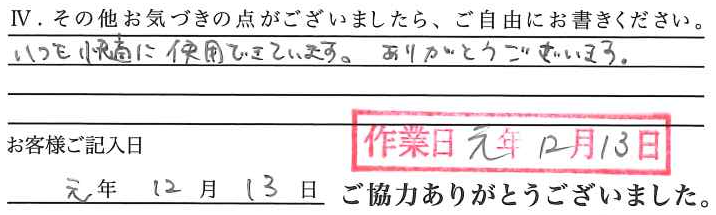 Ⅳ.その他お気づきの点がございましたら、ご自由にお書きください。
いつも快適に使用できています。ありがとうございます。
作業日 元年 12月13日
お客様ご記入日
元年 12月 13日 ご協力ありがとうございました。